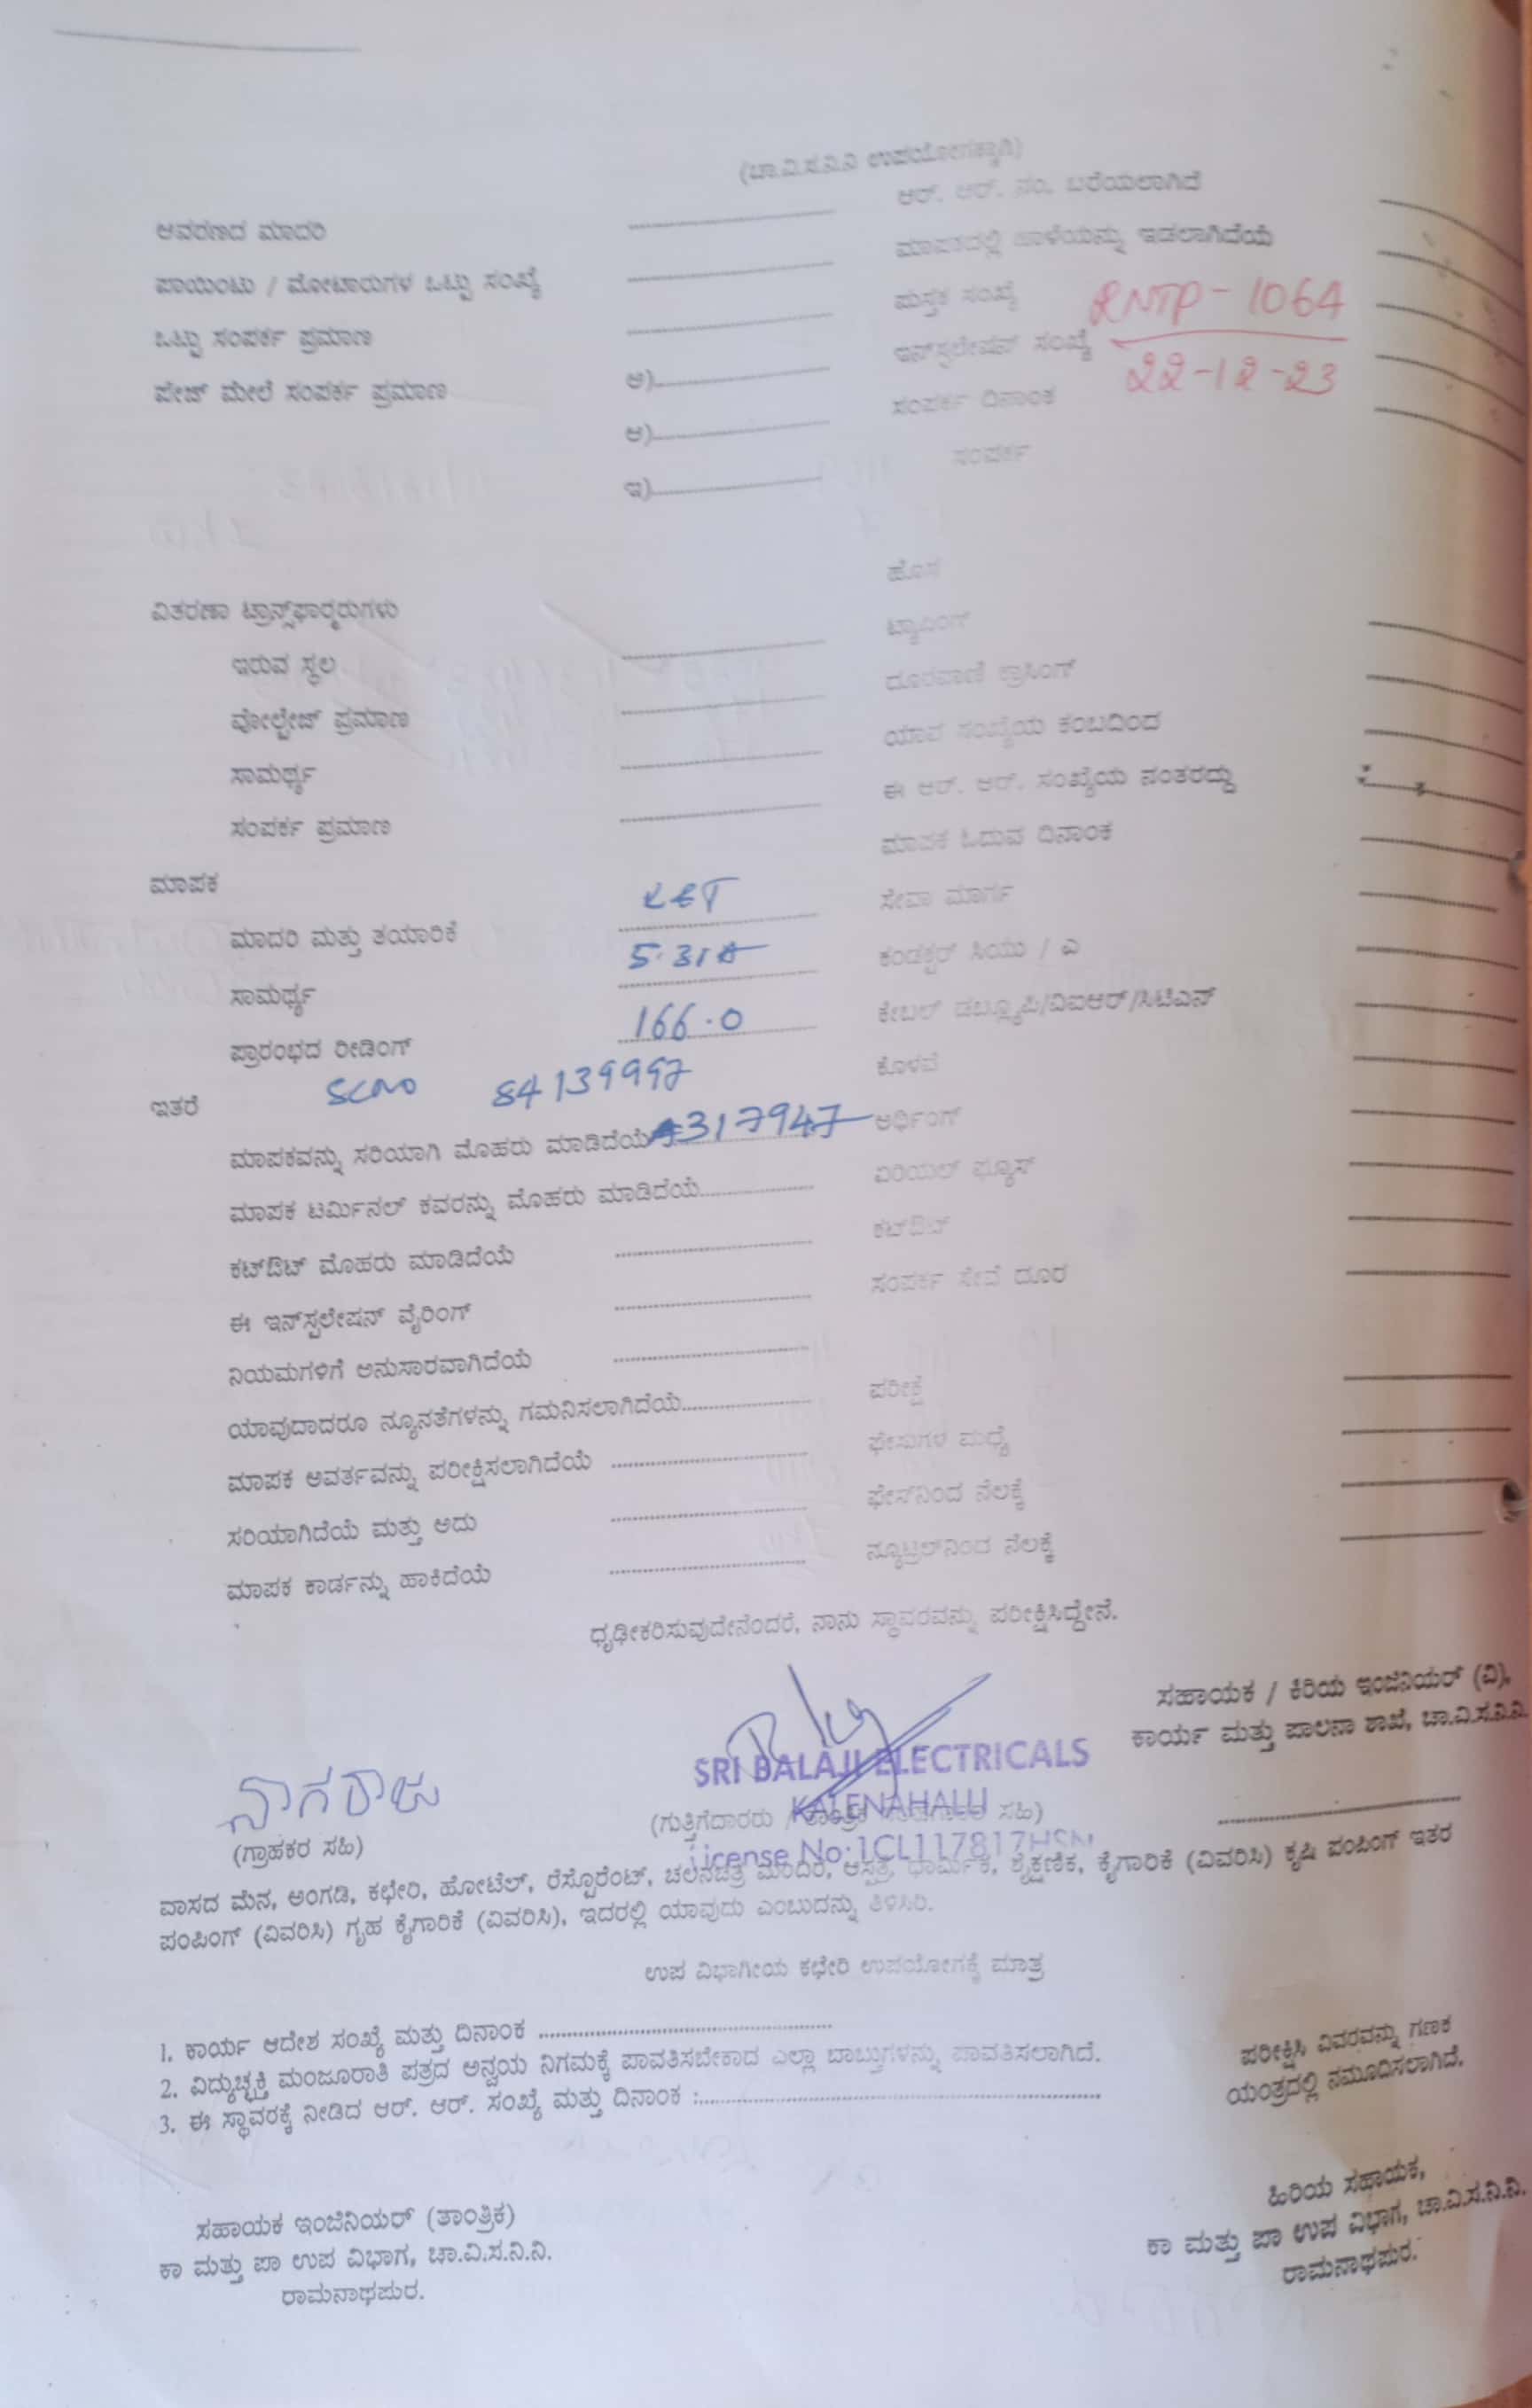 (ಚಾ.ವಿ.ಸ.ನಿ.ನಿ ಉಪಯೋಗಕ್ಕಾಗಿ)
ಆವರಣದ ಮಾದರಿ ಆರ್. ಆರ್. ನಂ. ಬರೆಯಲಾಗಿದೆ
ಪಾಯಿಂಟು / ಮೋಟಾರುಗಳ ಒಟ್ಟು ಸಂಖ್ಯೆ ಮಾಪಕದಲ್ಲಿ ಹಾಳೆಯನ್ನು ಇಡಲಾಗಿದೆಯೆ
ಒಟ್ಟು ಸಂಪರ್ಕ ಪ್ರಮಾಣ ಪುಸ್ತಕ ಸಂಖ್ಯೆ RNTP-1064
ಪೇಜ್ ಮೇಲೆ ಸಂಪರ್ಕ ಪ್ರಮಾಣ ಅ) ಇನ್‌ಸ್ಟಲೇಷನ್ ಸಂಖ್ಯೆ 22-12-23
ಆ) ಸಂಪರ್ಕ ದಿನಾಂಕ
ಇ) ಸಂಪರ್ಕ
ಹೊಸ
ವಿತರಣಾ ಟ್ರಾನ್ಸ್‌ಫಾರ್ಮರುಗಳು ಟ್ಯಾಪಿಂಗ್
ಇರುವ ಸ್ಥಲ ದೂರವಾಣಿ ಕ್ರಾಸಿಂಗ್
ವೋಲ್ಟೇಜ್ ಪ್ರಮಾಣ ಯಾವ ಸಂಖ್ಯೆಯ ಕಂಬದಿಂದ
ಸಾಮರ್ಥ್ಯ ಈ ಆರ್. ಆರ್. ಸಂಖ್ಯೆಯ ನಂತರದ್ದು
ಸಂಪರ್ಕ ಪ್ರಮಾಣ ಮಾಪಕ ಓದುವ ದಿನಾಂಕ
ಮಾಪಕ ಸೇವಾ ಮಾರ್ಗ
ಮಾದರಿ ಮತ್ತು ತಯಾರಿಕೆ L&T ಕಂಡಕ್ಟರ್ ಸಿಯು / ಎ
ಸಾಮರ್ಥ್ಯ ಕೇಬಲ್ ಡಬ್ಲ್ಯೂಪಿ/ವಿಐಆರ್/ಸಿಟಿಎಸ್
ಪ್ರಾರಂಭದ ರೀಡಿಂಗ್ 166.0 ಕೊಳವೆ
ಇತರೆ SLNO 84139997
ಮಾಪಕವನ್ನು ಸರಿಯಾಗಿ ಮೊಹರು ಮಾಡಿದೆಯೆ ಅರ್ಥಿಂಗ್
ಮಾಪಕ ಟರ್ಮಿನಲ್ ಕವರನ್ನು ಮೊಹರು ಮಾಡಿದೆಯೆ ಏರಿಯಲ್ ಫ್ಯೂಸ್
ಕಟ್‌ಔಟ್ ಮೊಹರು ಮಾಡಿದೆಯೆ ಕಟ್‌ಔಟ್
ಈ ಇನ್‌ಸ್ಟಲೇಷನ್ ವೈರಿಂಗ್ ಸಂಪರ್ಕ ಸೇವೆ ದೂರ
ನಿಯಮಗಳಿಗೆ ಅನುಸಾರವಾಗಿದೆಯೆ
ಯಾವುದಾದರೂ ನ್ಯೂನತೆಗಳನ್ನು ಗಮನಿಸಲಾಗಿದೆಯೆ ಪರೀಕ್ಷೆ
ಮಾಪಕ ಅವರ್ತವನ್ನು ಪರೀಕ್ಷಿಸಲಾಗಿದೆಯೆ ಫೇಸುಗಳ ಮಧ್ಯೆ
ಸರಿಯಾಗಿದೆಯೆ ಮತ್ತು ಅದು ಫೇಸ್‌ನಿಂದ ನೆಲಕ್ಕೆ
ಮಾಪಕ ಕಾರ್ಡನ್ನು ಹಾಕಿದೆಯೆ ನ್ಯೂಟ್ರಲ್‌ನಿಂದ ನೆಲಕ್ಕೆ
ಧೃಢೀಕರಿಸುವುದೇನೆಂದರೆ, ನಾನು ಸ್ಥಾವರವನ್ನು ಪರೀಕ್ಷಿಸಿದ್ದೇನೆ.
ಸಹಾಯಕ / ಕಿರಿಯ ಇಂಜಿನಿಯರ್ (ವಿ),
ಕಾರ್ಯ ಮತ್ತು ಪಾಲನಾ ಶಾಖೆ, ಚಾ.ವಿ.ಸ.ನಿ.ನಿ.
SRI BALAJI ELECTRICALS
ನಾಗರಾಜು KALENAHALLI
(ಗ್ರಾಹಕರ ಸಹಿ) (ಗುತ್ತಿಗೆದಾರರು / ಸಹಿ)
License No:1CL117817HSN
ವಾಸದ ಮನೆ, ಅಂಗಡಿ, ಕಛೇರಿ, ಹೋಟೆಲ್, ರೆಸ್ಟೊರೆಂಟ್, ಚಲನಚಿತ್ರ ಮಂದಿರ, ಆಸ್ಪತ್ರೆ, ಧಾರ್ಮಿಕ, ಶೈಕ್ಷಣಿಕ, ಕೈಗಾರಿಕೆ (ವಿವರಿಸಿ) ಕೃಷಿ ಪಂಪಿಂಗ್ ಇತರ
ಪಂಪಿಂಗ್ (ವಿವರಿಸಿ) ಗೃಹ ಕೈಗಾರಿಕೆ (ವಿವರಿಸಿ), ಇದರಲ್ಲಿ ಯಾವುದು ಎಂಬುದನ್ನು ತಿಳಿಸಿರಿ.
ಉಪ ವಿಭಾಗೀಯ ಕಛೇರಿ ಉಪಯೋಗಕ್ಕೆ ಮಾತ್ರ
1. ಕಾರ್ಯ ಆದೇಶ ಸಂಖ್ಯೆ ಮತ್ತು ದಿನಾಂಕ
2. ವಿದ್ಯುಚ್ಛಕ್ತಿ ಮಂಜೂರಾತಿ ಪತ್ರದ ಅನ್ವಯ ನಿಗಮಕ್ಕೆ ಪಾವತಿಸಬೇಕಾದ ಎಲ್ಲಾ ಬಾಬ್ತುಗಳನ್ನು ಪಾವತಿಸಲಾಗಿದೆ.
3. ಈ ಸ್ಥಾವರಕ್ಕೆ ನೀಡಿದ ಆರ್. ಆರ್. ಸಂಖ್ಯೆ ಮತ್ತು ದಿನಾಂಕ :
ಪರೀಕ್ಷಿಸಿ ವಿವರವನ್ನು ಗಣಕ
ಯಂತ್ರದಲ್ಲಿ ನಮೂದಿಸಲಾಗಿದೆ.
ಸಹಾಯಕ ಇಂಜಿನಿಯರ್ (ತಾಂತ್ರಿಕ)
ಕಾ ಮತ್ತು ಪಾ ಉಪ ವಿಭಾಗ, ಚಾ.ವಿ.ಸ.ನಿ.ನಿ.
ರಾಮನಾಥಪುರ.
ಹಿರಿಯ ಸಹಾಯಕ,
ಕಾ ಮತ್ತು ಪಾ ಉಪ ವಿಭಾಗ, ಚಾ.ವಿ.ಸ.ನಿ.ನಿ.
ರಾಮನಾಥಪುರ.